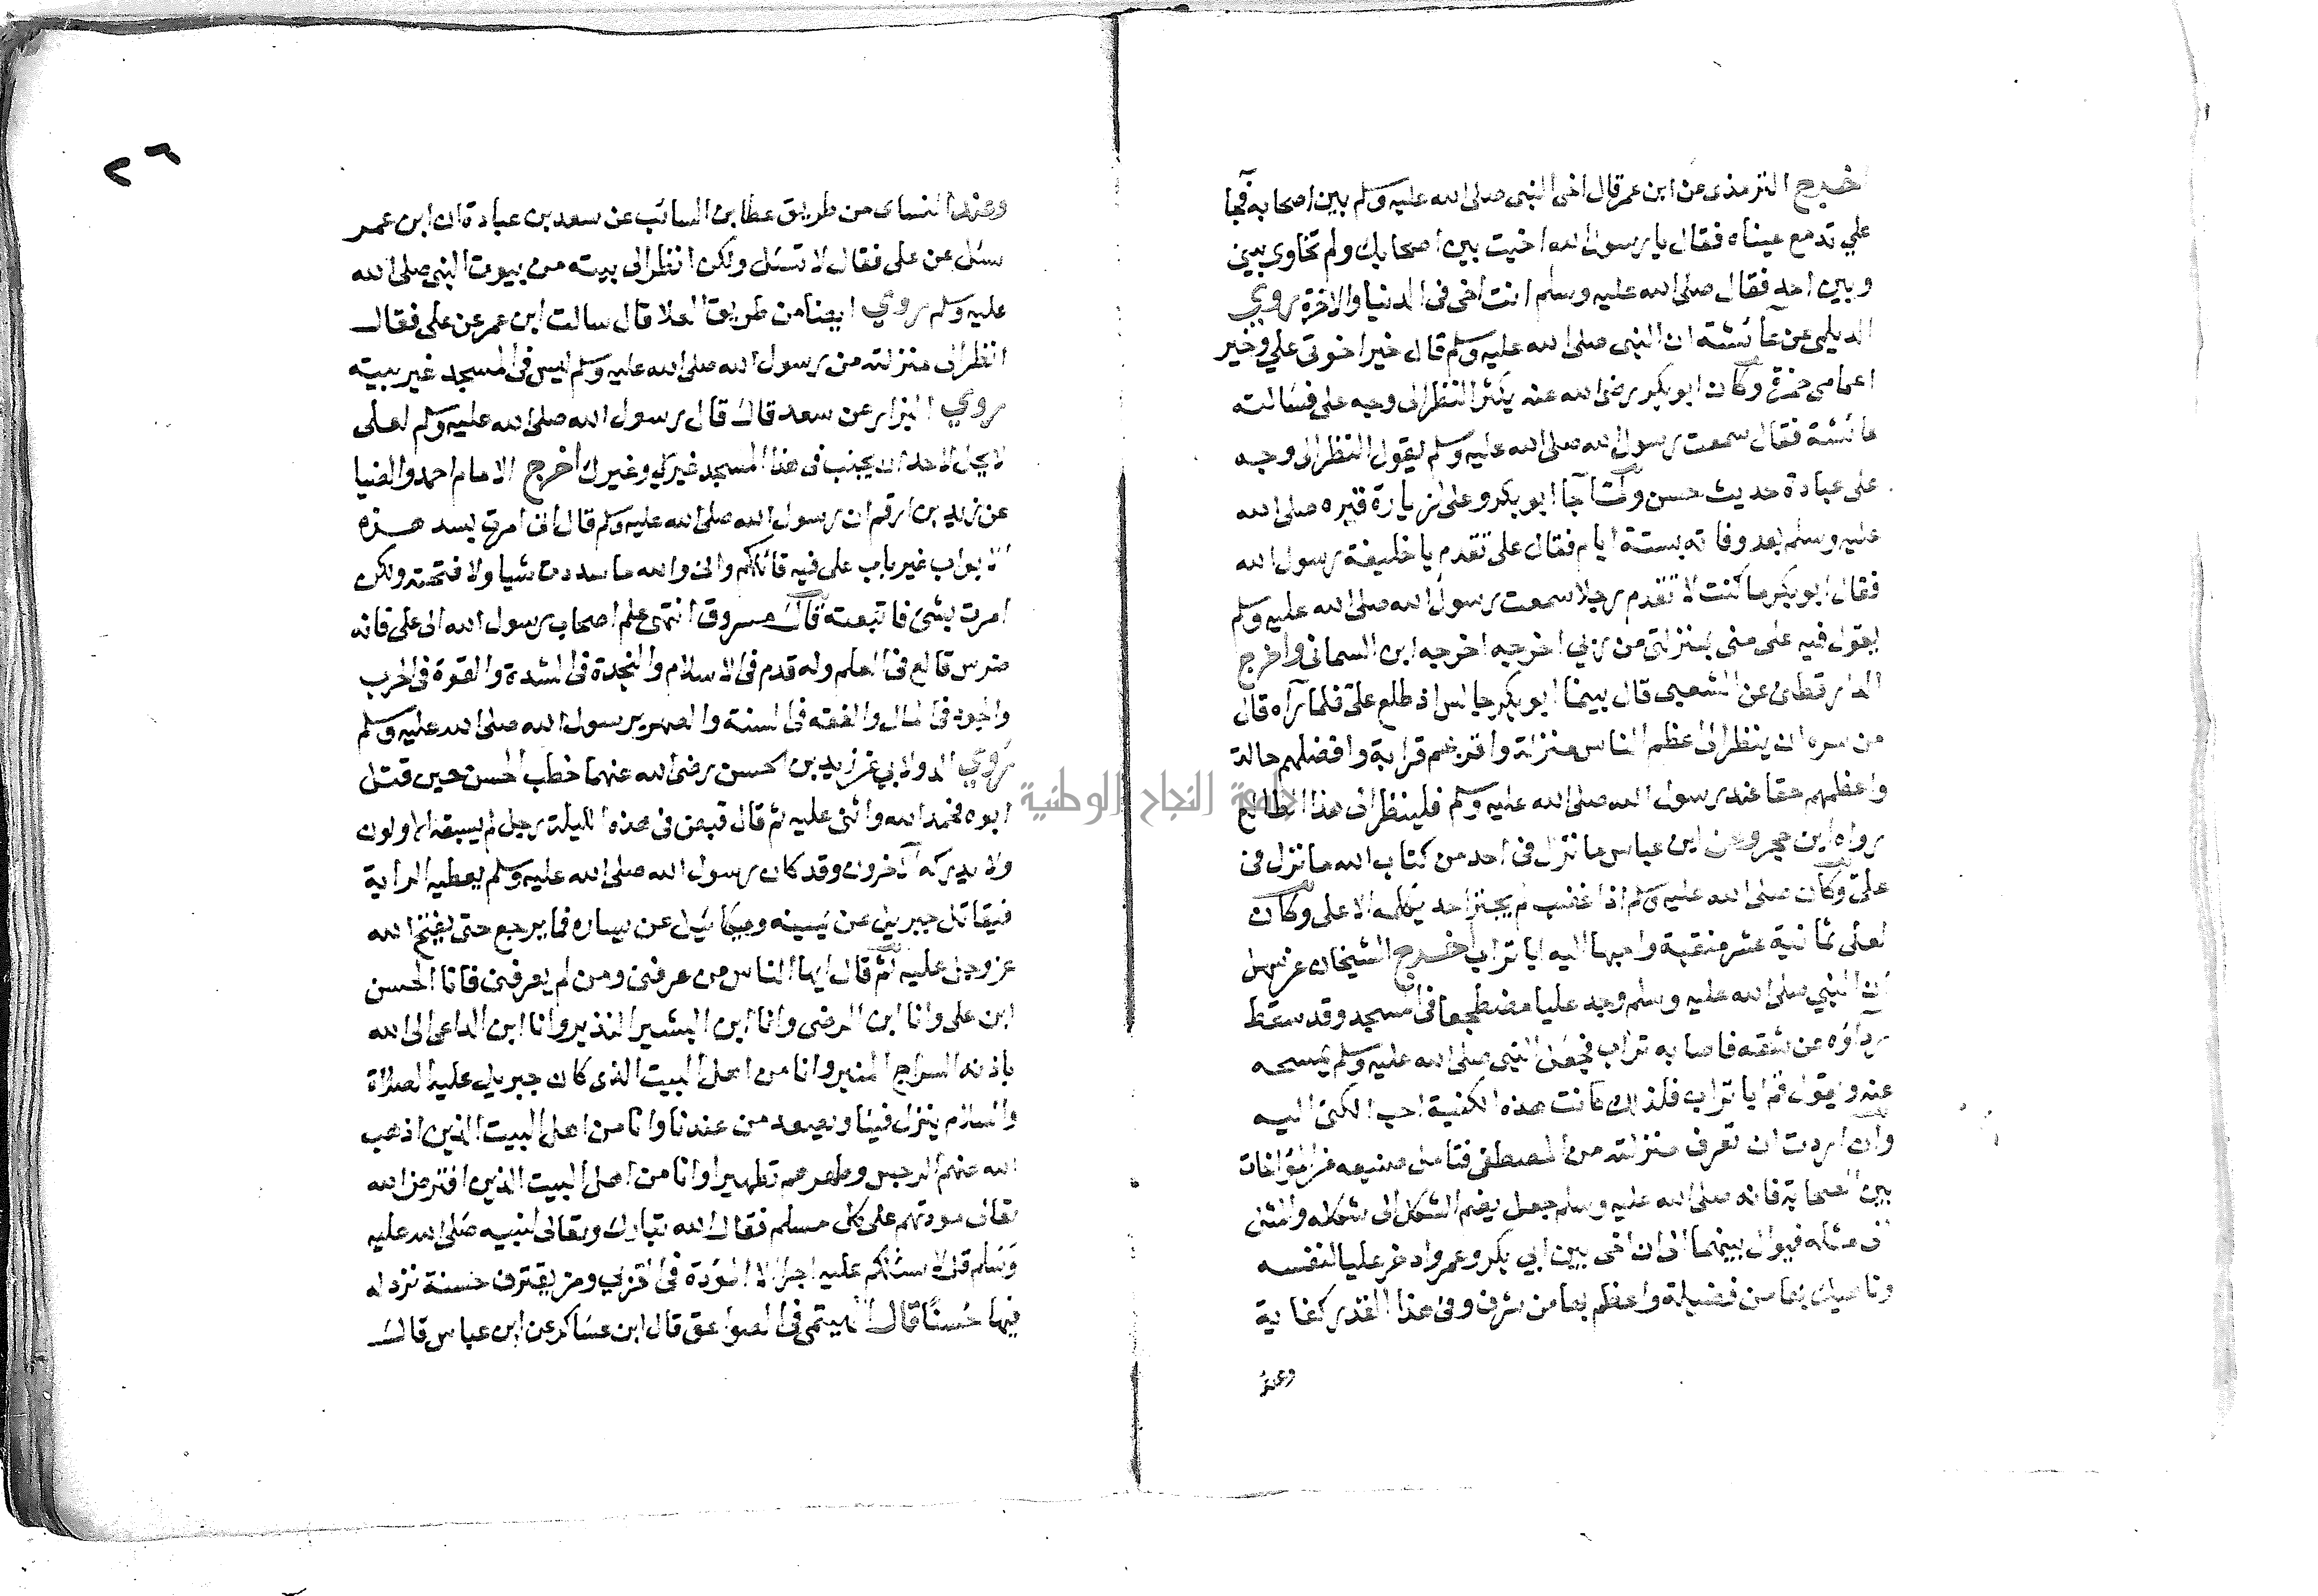 اخرج الترمذي عن ابن عمر قال اخى النبي صلى الله عليه وسلم بين اصحابه فجا
علي تدمع عيناه فقال يا رسول الله اخيت بين اصحابك ولم تخاوي بيني
وبين احد فقال صلى الله عليه وسلم انت اخي في الدنيا والاخرة وروي
الديلمي عن عائشة ان النبي صلى الله عليه وسلم قال خير اخوتي علي وخير
اعمامي حمزة وكان ابو بكر رضي الله عنه يكثر النظر الى وجه علي فسالته
عائشة فقال سمعت رسول الله صلى الله عليه وسلم يقول النظر الى وجه
علي عبادة حديث حسن ولما جا ابو بكر وعلي لزيارة قبره صلى الله
عليه وسلم بعد وفاته بستة ايام فقال علي تقدم يا خليفة رسول الله
فقال ابو بكر ما كنت لاتقدم رجلا سمعت رسول الله صلى الله عليه وسلم
يقول فيه علي مني بمنزلتي من ربي اخرجه اخرجه ابن السماني واخرج
الدارقطني عن الشعبي قال بينما ابو بكر جالس اذ طلع علي فلما رآه قال
من سره ان ينظر الى اعظم الناس منزلة واقربهم قرابة وافضلهم حالة
واعظمهم حقا عند رسول الله صلى الله عليه وسلم فلينظر الى هذا الطالع
رواه ابن حجر وعن ابن عباس ما نزل في احد من كتاب الله ما نزل في
علي وكان صلى الله عليه وسلم اذا غضب لم يجتز احد يكلمه الا علي وكان
لعلي ثمانية عشر منقبة واحبها اليه ابا تراب اخرج الشيخان عن سهل
ان النبي صلى الله عليه وسلم وجد عليا مضطجعا في المسجد وقد سقط
رداؤه عن شقه فاصابه تراب فجعل النبي صلى الله عليه وسلم يمسحه
عنه ويقول قم ابا تراب فلذلك كانت هذه الكنية احب الكنى اليه
وان اردت ان تعرف منزلته من المصطفى فتامل صنيعه في المؤاخات
بين الصحابة فانه صلى الله عليه وسلم جعل يضم الشكل الى شكله والمثل
الى مثله فيوال بينهما الى ان اخى بين ابي بكر وعمر وادخر عليا لنفسه
وناهيك بها من فضيلة واعظم بها من شرف وفي هذا القدر كفاية
وعند
٢٦
وعند النساى من طريق عطا بن السائب عن سعد بن عبادة ان ابن عمر
سئل عن علي فقال لا تسئل ولكن انظر الى بيته من بيوت النبي صلى الله
عليه وسلم وروي ايضا من طريق العلا قال سالت ابن عمر عن علي فقال
انظر الى منزلته من رسول الله صلى الله عليه وسلم ليس في المسجد غير بيته
وروي البزار عن سعد قال قال رسول الله صلى الله عليه وسلم لعلي
لا يحل لاحد ان يجنب في هذا المسجد غيري وغيرك اخرج الامام احمد والضيا
عن زيد بن ارقم ان رسول الله صلى الله عليه وسلم قال اني امرت بسد هذه
الابواب غير باب علي فيه قائلكم واني والله ما سددت شيا ولا فتحته ولكن
امرت بشئ فاتبعته قال مسروق انتهى علم اصحاب رسول الله الى علي فانه
ضرس قاطع في العلم وله قدم في الاسلام والنجدة في الشدة والقوة في الحرب
والجود في المال والفقه في السنة والصهر برسول الله صلى الله عليه وسلم
وروي الدولابي عن زيد بن الحسن رضي الله عنهما خطب الحسن حين قتل
ابوه فحمد الله واثنى عليه ثم قال قبض في هذه الليلة رجل لم يسبقه الاولون
ولا يدركه الآخرون وقد كان رسول الله صلى الله عليه وسلم يعطيه الراية
فيقاتل جبريل عن يمينه وميكائيل عن يساره فما يرجع حتى يفتح الله
عز وجل عليه ثم قال ايها الناس من عرفني ومن لم يعرفني فانا الحسن
ابن علي وانا ابن الرضى وانا ابن البشير النذير وانا ابن الداعي الى الله
باذنه السراج المنير وانا من اهل البيت الذي كان جبريل عليه الصلاة
والسلام ينزل فينا ويصعد من عندنا وانا من اهل البيت الذين اذهب
الله عنهم الرجس وطهرهم تطهيرا وانا من اهل البيت الذين افترض الله
تعالى مودتهم على كل مسلم فقال الله تبارك وتعالى لنبيه صلى الله عليه
وسلم قل لا اسئلكم عليه اجرا الا المودة في القربى ومن يقترف حسنة نزد له
فيها حُسنًا قال الهيتمي في الصواعق قال ابن عساكر عن ابن عباس قال
جامعة النجاح الوطنية